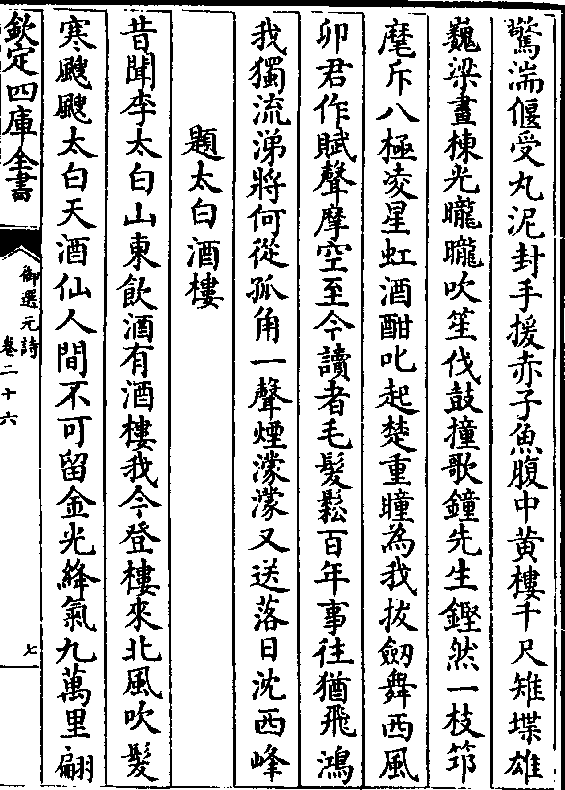 驚湍偃受丸泥封手援赤子魚腹中黃樓千尺雉堞雄
巍梁畫棟光曨曨吹笙伐鼓撞歌鐘先生鏗然一枝筇
麾斥八極凌星虹酒酣叱起楚重瞳為我拔劒舞西風
卯君作賦聲摩空至今讀者毛髮鬆百年事往猶飛鴻
我獨流涕將何從孤角一聲煙濛濛又送落日沈西峰
題太白酒樓
昔聞李太白山東飲酒有酒樓我今登樓來北風吹髮
寒颼颼太白天酒仙人間不可留金光絳氣九萬里翩
欽定四庫全書
御選元詩
卷二十六
七